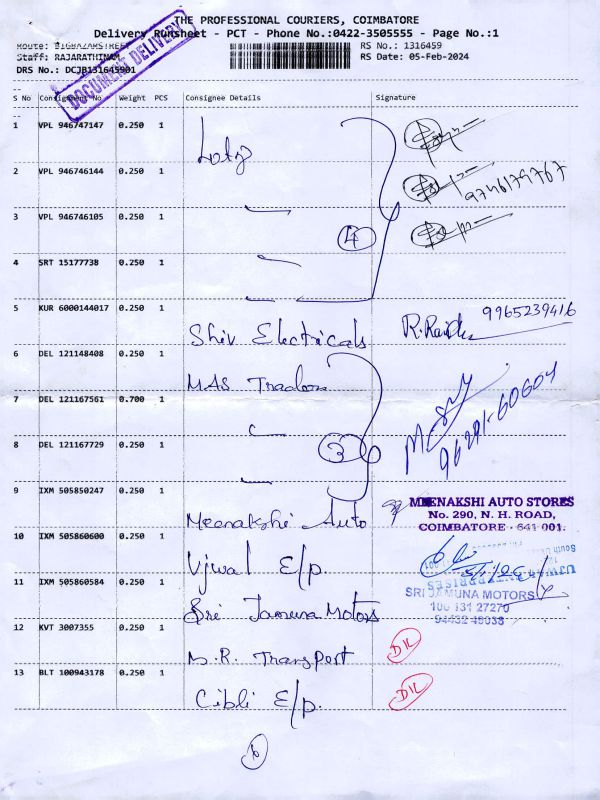 THE PROFESSIONAL COURIERS, COIMBATORE
Delivery Runsheet - PCT - Phone No.:0422-3505555 - Page No.:1
Route: BIGBAZARSTREET
RS No.: 1316459
Staff: RAJARATHINAM
RS Date: 05-Feb-2024
DRS No.: DCJB131645901
DOCUMENT DELIVERY
S No Consignment No Weight PCS Consignee Details Signature
1 VPL 946747147 0.250 1
2 VPL 946746144 0.250 1
9746179767
3 VPL 946746105 0.250 1
4
4 SRT 15177738 0.250 1
5 KUR 6000144017 0.250 1 Shiv Electricals
9965239416
6 DEL 121148408 0.250 1 MAS Traders
7 DEL 121167561 0.700 1
96291-60604
8 DEL 121167729 0.250 1
3
9 IXM 505850247 0.250 1 Meenakshi Auto
MEENAKSHI AUTO STORES
No. 290, N. H. ROAD,
COIMBATORE - 641 001.
10 IXM 505860600 0.250 1 Ujwal E/p.
UJWAL ENTERPRISES
11 IXM 505860584 0.250 1 Sri Jamuna Motors
SRI JAMUNA MOTORS
94432 48038
12 KVT 3007355 0.250 1 M.R. Transport
D/L
13 BLT 100943178 0.250 1 Cibli E/p.
D/L